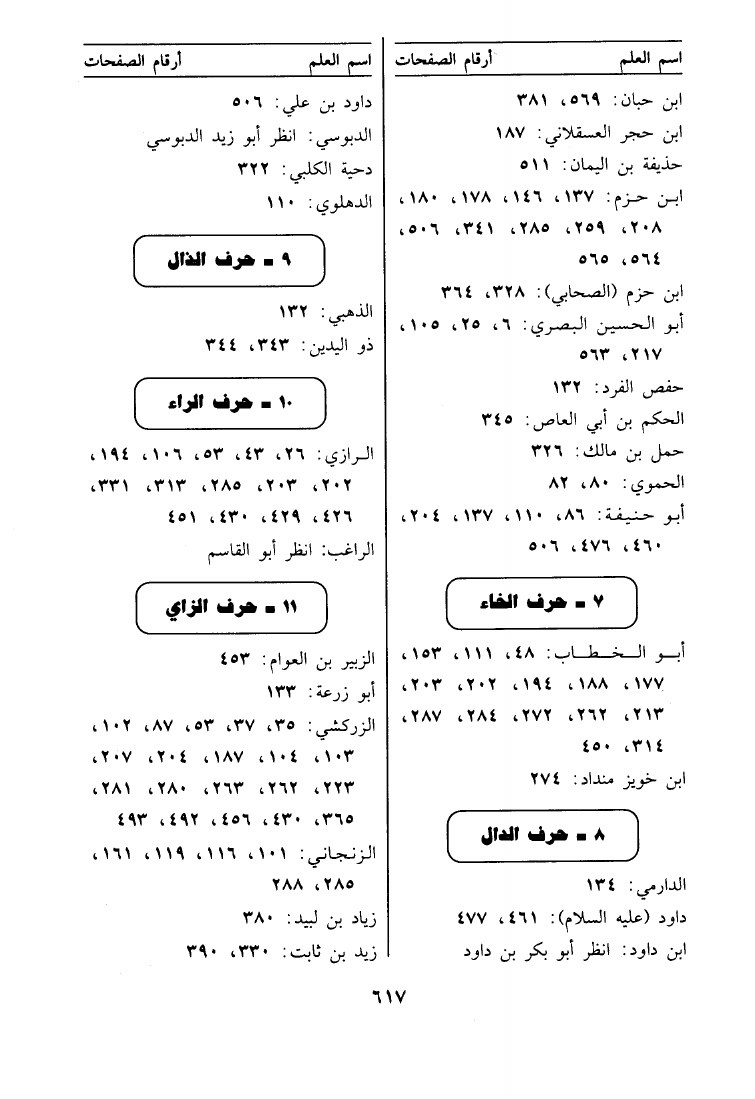 اسم العلم أرقام الصفحات
ابن حبان: ٥٦٩، ٣٨١
ابن حجر العسقلاني: ١٨٧
حذيفة بن اليمان: ٥١١
ابـن حـزم: ١٣٧، ١٤٦، ١٧٨، ١٨٠،
٢٠٨، ٢٥٩، ٢٨٥، ٣٤١، ٥٠٦،
٥٦٤، ٥٦٥
ابن حزم (الصحابي): ٣٢٨، ٣٦٤
أبـو الـحسين البـصري: ٦، ٢٥، ١٠٥،
٢١٧، ٥٦٣
حفص الفرد: ١٣٢
الحكم بن أبي العاص: ٣٤٥
حمل بن مالك: ٣٢٦
الحموي: ٨٠، ٨٢
أبـو حنـيفـة: ٨٦، ١١٠، ١٣٧، ٢٠٤،
٤٦٠، ٤٧٦، ٥٠٦
٧ - حرف الخاء
أبـــو الـــخـــطـــاب: ٤٨، ١١١، ١٥٣،
١٧٧، ١٨٨، ١٩٤، ٢٠٢، ٢٠٣،
٢١٣، ٢٦٢، ٢٧٢، ٢٨٤، ٢٨٧،
٣١٤، ٤٥٠
ابن خويز منداد: ٢٧٤
٨ - حرف الدال
الدارمي: ١٣٤
داود (عليه السلام): ٤٦١، ٤٧٧
ابن داود: انظر أبو بكر بن داود
اسم العلم أرقام الصفحات
داود بن علي: ٥٠٦
الدبوسي: انظر أبو زيد الدبوسي
دحية الكلبي: ٣٢٢
الدهلوي: ١١٠
٩ - حرف الذال
الذهبي: ١٣٢
ذو اليدين: ٣٤٣، ٣٤٤
١٠ - حرف الراء
الـرازي: ٢٦، ٤٣، ٥٣، ١٠٦، ١٩٤،
٢٠٢، ٢٠٣، ٢٨٥، ٣١٣، ٣٣١،
٤٢٦، ٤٢٩، ٤٣٠، ٤٥١
الراغب: انظر أبو القاسم
١١ - حرف الزاي
الزبير بن العوام: ٤٥٣
أبو زرعة: ١٣٣
الزركشي: ٣٥، ٣٧، ٥٣، ٨٧، ١٠٢،
١٠٣، ١٠٤، ١٨٧، ٢٠٤، ٢٠٧،
٢٢٣، ٢٦٢، ٢٦٣، ٢٨٠، ٢٨١،
٣٦٥، ٤٣٠، ٤٥٦، ٤٩٢، ٤٩٣
الـزنـجـاني: ١٠١، ١١٦، ١١٩، ١٦١،
٢٨٥، ٢٨٨
زياد بن لبيد: ٣٨٠
زيد بن ثابت: ٣٣٠، ٣٩٠
٦١٧